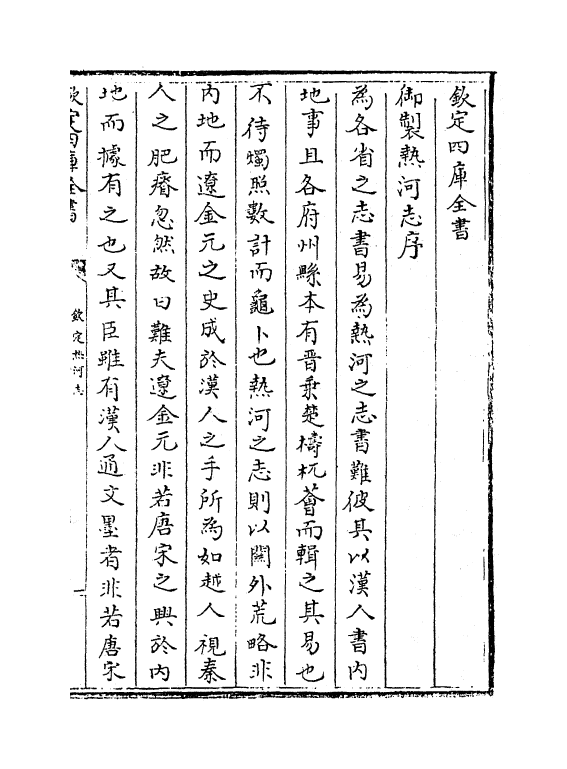 欽定四庫全書
御製熱河志序
為各省之志書易為熱河之志書難彼其以漢人書內
地事且各府州縣本有晉乗楚檮杌薈而輯之其易也
不待燭照數計而龜卜也熱河之志則以關外荒略非
內地而遼金元之史成於漢人之手所為如越人視秦
人之肥瘠忽然故曰難夫遼金元非若唐宋之興於內
地而據有之也又其臣雖有漢人通文墨者非若唐宋
欽定四庫全書
欽定熱河志
一